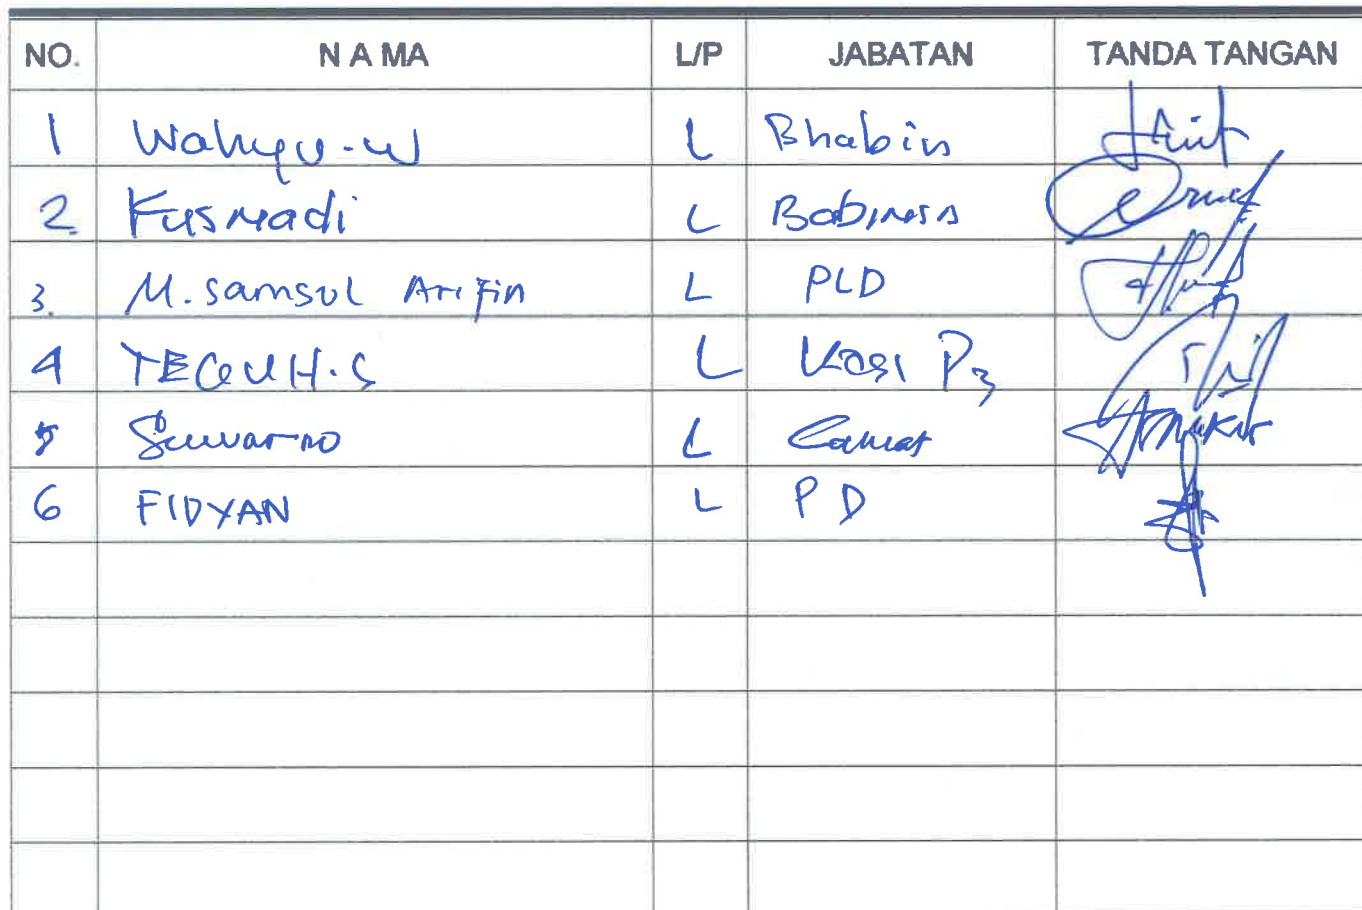 NO. N A M A L/P JABATAN TANDA TANGAN
1 Wahyu.W L Bhabin
2. Kusmadi L Babinsa
3. M. Samsul Arifin L PLD
4 TEGUH.S L Kasi P3
5 Suwarno L Camat
6 FIDYAN L PD